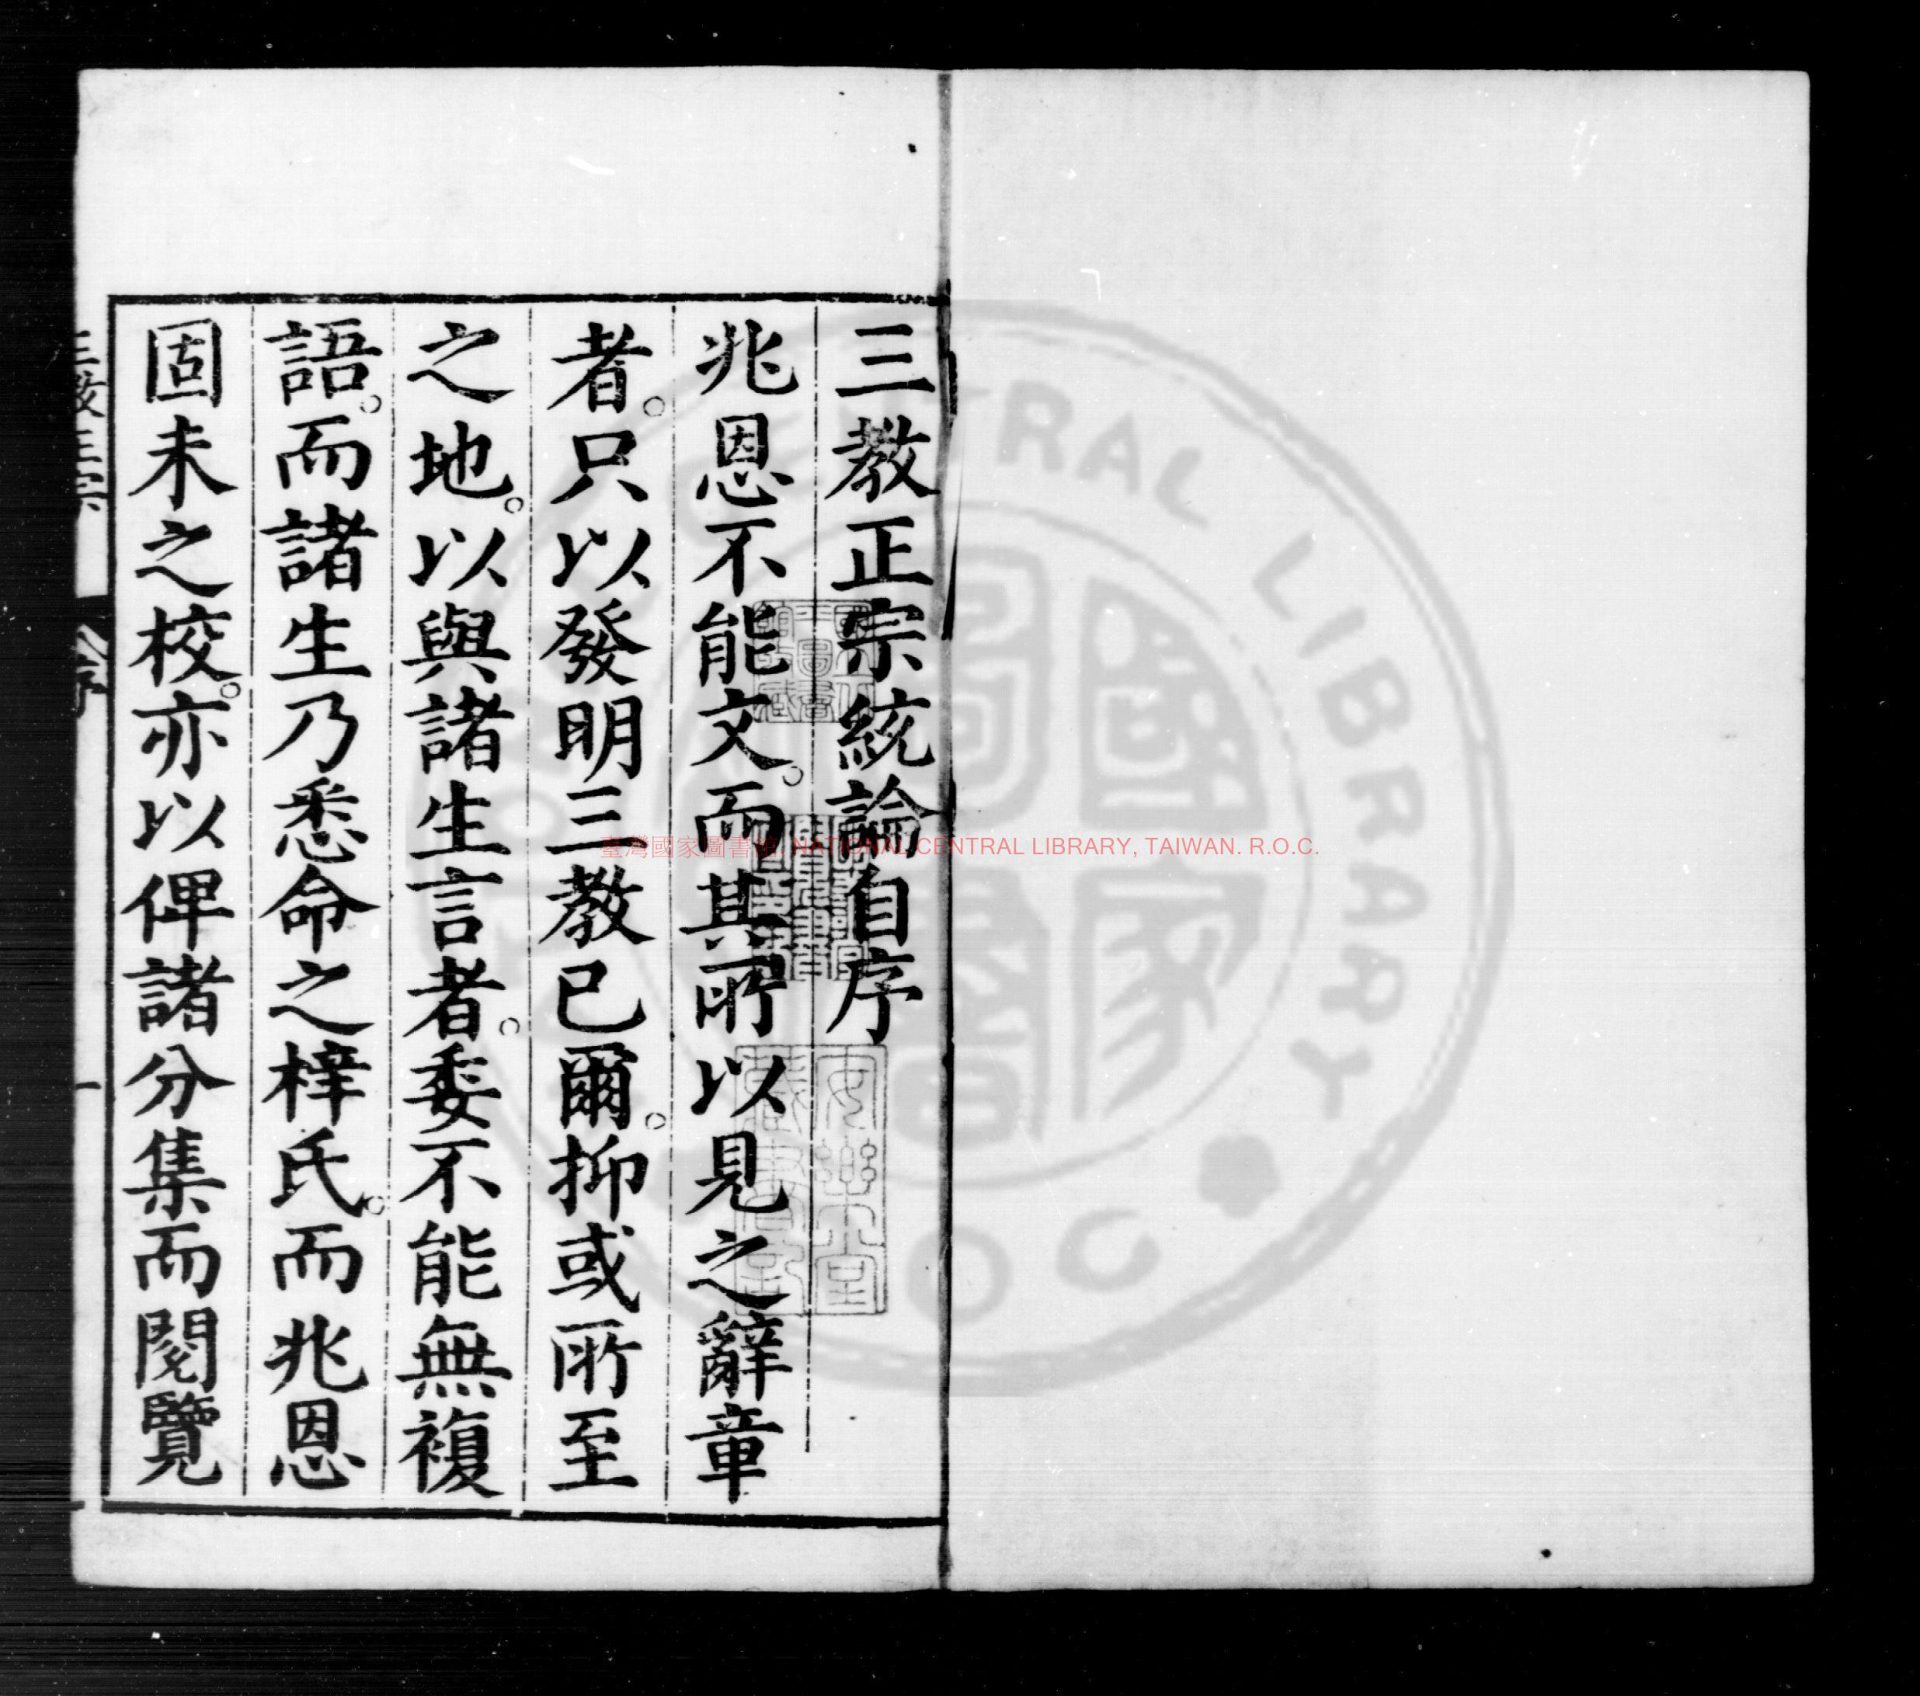 三教正宗統論自序
兆恩不能文。而其所以見之辭章
者。只以發明三教已爾。抑或所至
之地。以與諸生言者。委不能無複
語。而諸生乃悉命之梓氏。而兆恩
固未之校。亦以俾諸分集而閱覽
三教正宗
序
一
臺灣國家圖書館 NATIONAL CENTRAL LIBRARY, TAIWAN. R.O.C.
CENTRAL LIBRARY
國家圖書
安樂堂
藏書記